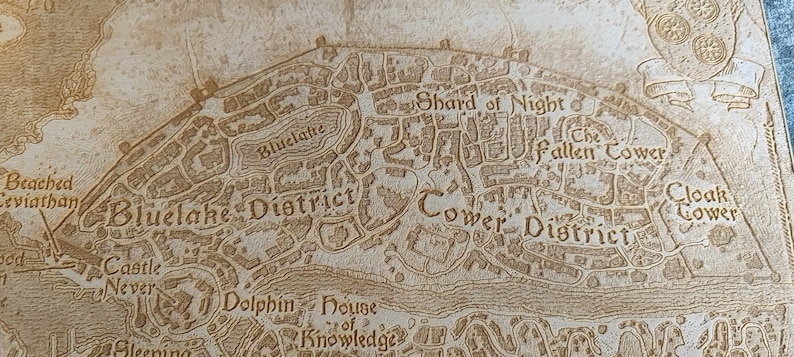 Shard of Night
Bluelake
The
Fallen Tower
Beached
Leviathan
Bluelake District
Cloak
Tower
Tower District
Castle
Never
Dolphin
House
of
Knowledge
Sleeping